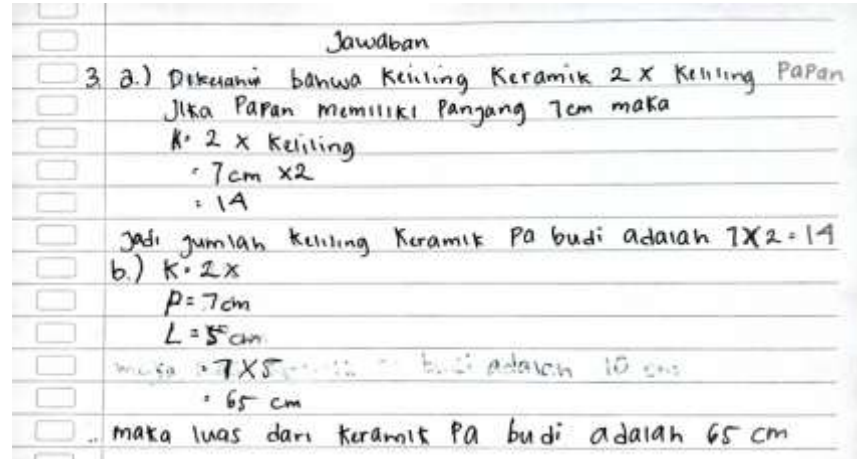 Jawaban
3 a.) Diketahui bahwa Keliling Keramik 2 x Keliling Papan
Jika Papan memiliki Panjang 7cm maka
K = 2 x Keliling
= 7cm x2
= 14
Jadi Jumlah Keliling Keramik Pa budi adalah 7x2 = 14
b.) K = 2x
P = 7cm
L = 5cm
= 7x5 budi adalah 10
= 65 cm
maka luas dari Keramik Pa budi adalah 65 cm